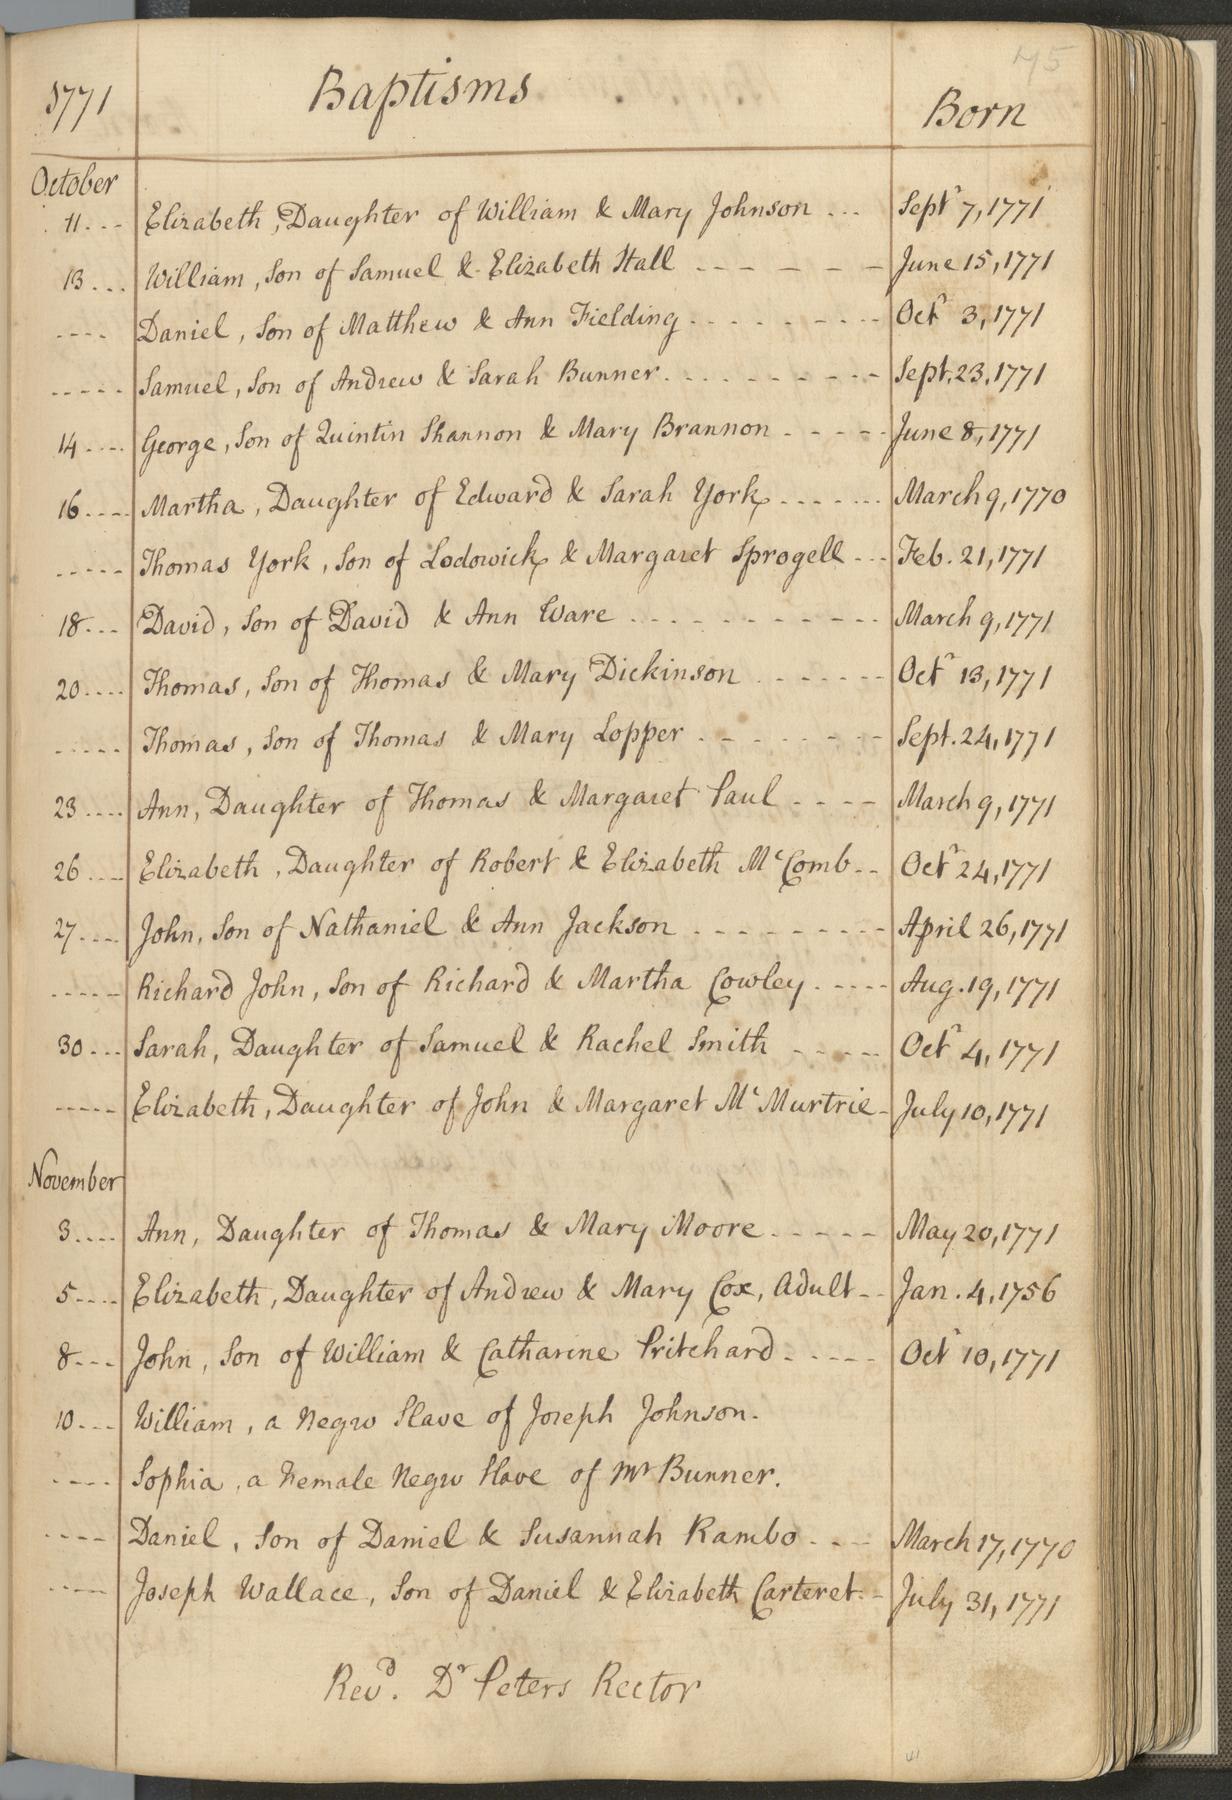 75
1771 Baptisms Born
October
11... Elizabeth, Daughter of William & Mary Johnson ... Septr 7, 1771
13... William, Son of Samuel & Elizabeth Hall - - - - - - June 15, 1771
---- Daniel, Son of Matthew & Ann Fielding - - - - - - - - Octr 3, 1771
----- Samuel, Son of Andrew & Sarah Bunner - - - - - - - - - Sept. 23, 1771
14.... George, Son of Quintin Shannon & Mary Brannon - - - - - June 8, 1771
16.... Martha, Daughter of Edward & Sarah York - - - - - - March 9, 1770
----- Thomas York, Son of Lodowick & Margaret Sprogell --- Feb. 21, 1771
18... David, Son of David & Ann Ware - - - - - - - - - - - March 9, 1771
20.... Thomas, Son of Thomas & Mary Dickinson - - - - - - - Octr 13, 1771
----- Thomas, Son of Thomas & Mary Lopper - - - - - - - - Sept. 24, 1771
23.... Ann, Daughter of Thomas & Margaret Paul - - - - March 9, 1771
26.... Elizabeth, Daughter of Robert & Elizabeth McComb-- Octr 24, 1771
27.... John, Son of Nathaniel & Ann Jackson - - - - - - - - - April 26, 1771
----- Richard John, Son of Richard & Martha Cowley - - - - - Aug. 19, 1771
30... Sarah, Daughter of Samuel & Rachel Smith - - - - - Octr 4, 1771
----- Elizabeth, Daughter of John & Margaret McMurtrie - July 10, 1771
November
3.... Ann, Daughter of Thomas & Mary Moore - - - - - - May 20, 1771
5.... Elizabeth, Daughter of Andrew & Mary Cox, Adult-- Jan. 4, 1756
8--- John, Son of William & Catharine Pritchard - - - - - Octr 10, 1771
10... William, a Negro Slave of Joseph Johnson.
---- Sophia, a Female Negro Slave of Mr Bunner.
---- Daniel, Son of Daniel & Susannah Rambo - - - - March 17, 1770
---- Joseph Wallace, Son of Daniel & Elizabeth Carteret.- July 31, 1771
Revd. Dr Peters Rector